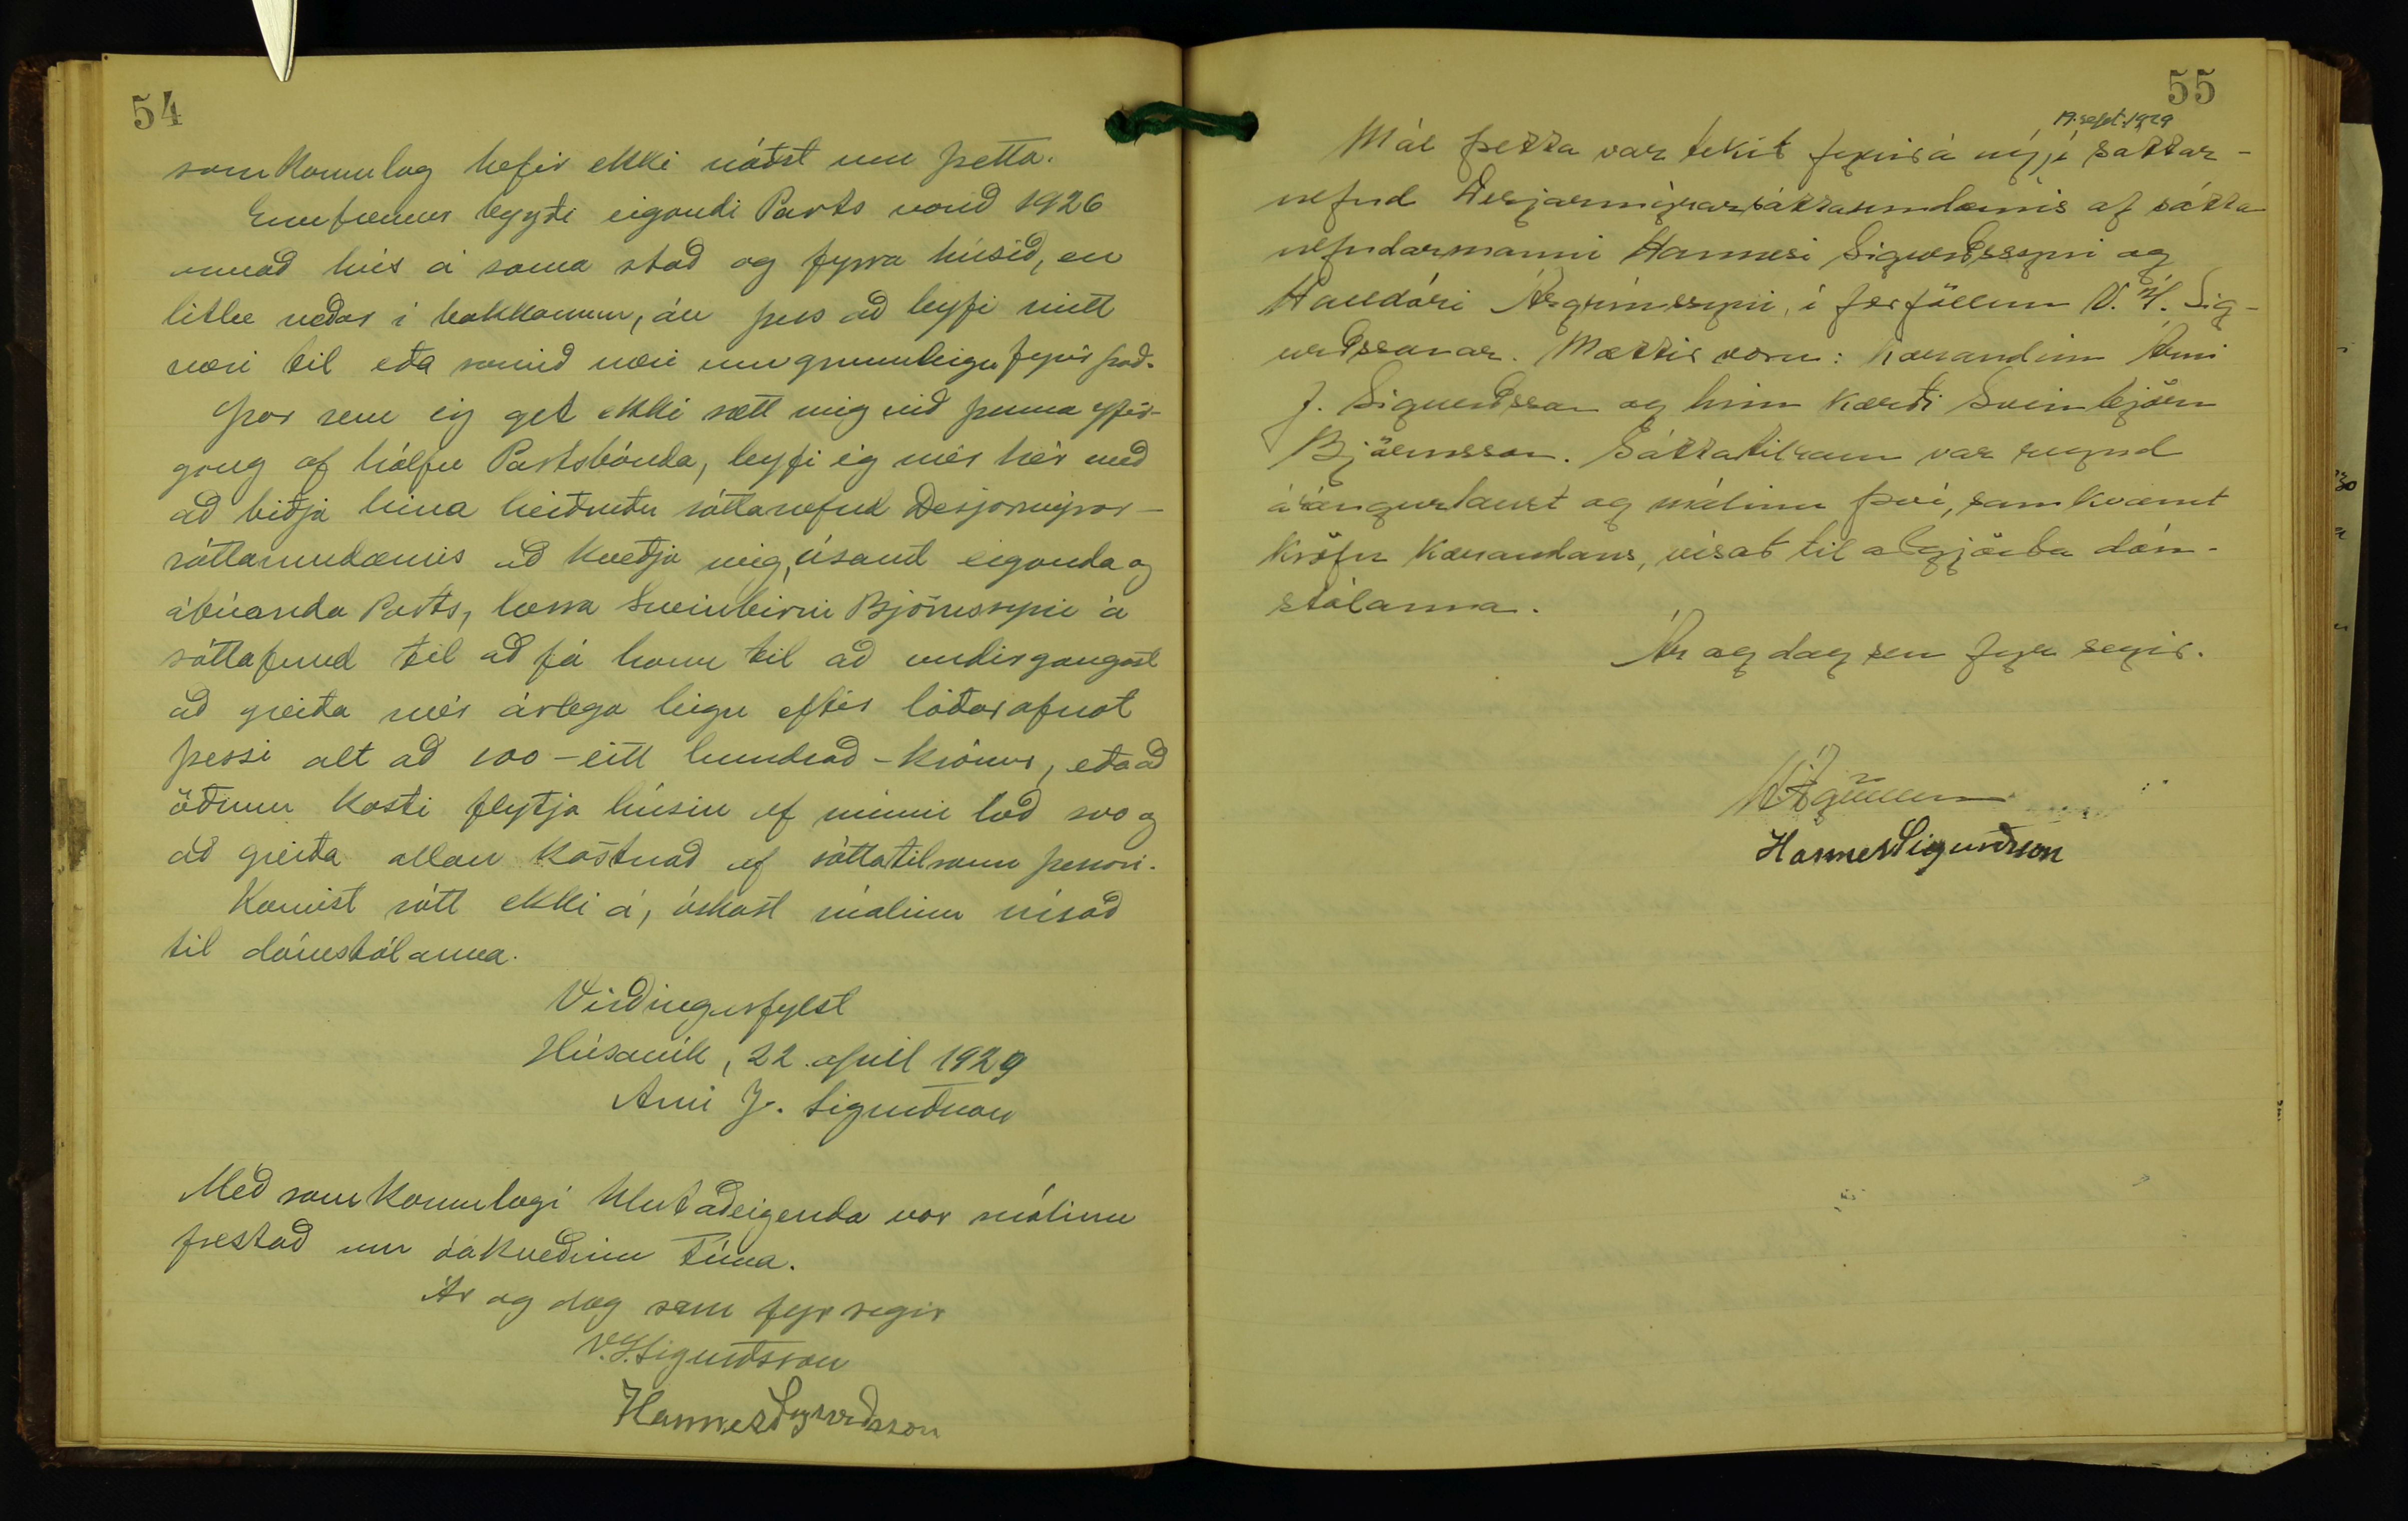 54
samkomulag hefir ekki náðst um þetta.
Ennfremur bygði eigandi Parts vorið 1926
annað hús á sama stað og fyrra húsið, en
litlu neðar í bakkanum, án þess að leyfi mitt
væri til eða samið væri um grunnleigu fyrir það.
Þar sem eg get ekki sætt mig við þenna yfir-
gang af hálfu Partsbónda, leyfi eg mér hér með
að biðja hina heiðruðu sáttanefnd Desjarmýrar-
sáttaumdæmis að kveðja mig, ásamt eiganda og
ábúanda Parts, herra Sveinbirni Björnssyni á
sáttafund til að fá hann til að undirgangast
að greiða mér árlega leigu eftir lóðarafnot
þessi alt að 100 - eitt hundrað - krónur, eða að
öðrum kosti flytja húsin af minni lóð svo og
að greiða allan kostnað af sáttatilraun þessari.
Komist sátt ekki á, óskast málinu vísað
til dómstólanna.
Virðingarfylst
Húsavík, 22. apríl 1929
Árni J. Sigurðsson
Með samkomulagi hlutaðeigenda var málinu
frestað um óákveðinn tíma.
Ár og dag sem fyr segir
V.H. Sigurðsson
Hannes Sigurðsson
55
19. sept. 1929
Mál þetta var tekið fyrir á nýjú sáttar-
nefnd Desjarmýrarsáttaumdæmis af sátta
nefndarmanni Hannesi Sigurðssyni og
Halldóri Ásgrímssyni, í forföllum V. H. Sig-
urðssonar. Mættir voru: Kærandinn Árni
J. Sigurðsson og hinn kærði Sveinbjörn
Björnsson. Sáttatilraun var reynd
árangurlaust og málinu því, samkvæmt
kröfu kærandans, vísað til aðgjörða dóm-
stólanna.
Ár og dag sem fyr segir.
Hannes Sigurðsson